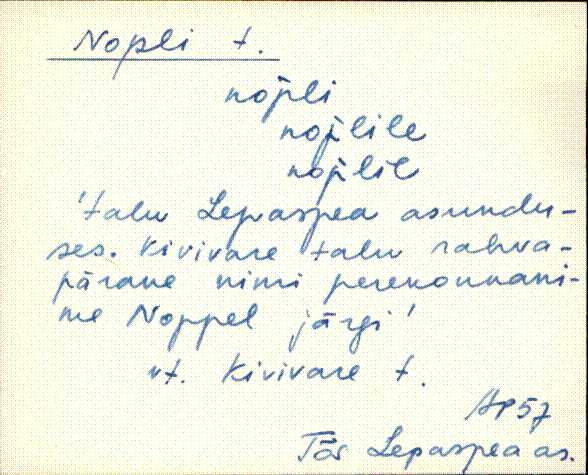 Nopli t.
nop̀li
nop̀lile
nop̀lil
'talu Lepaspea asundu-
ses. Kivivare talu rahva-
pärane nimi perekonnani-
me Noppel järgi'
vt. Kivivare t.
AP57
Lepaspea as.